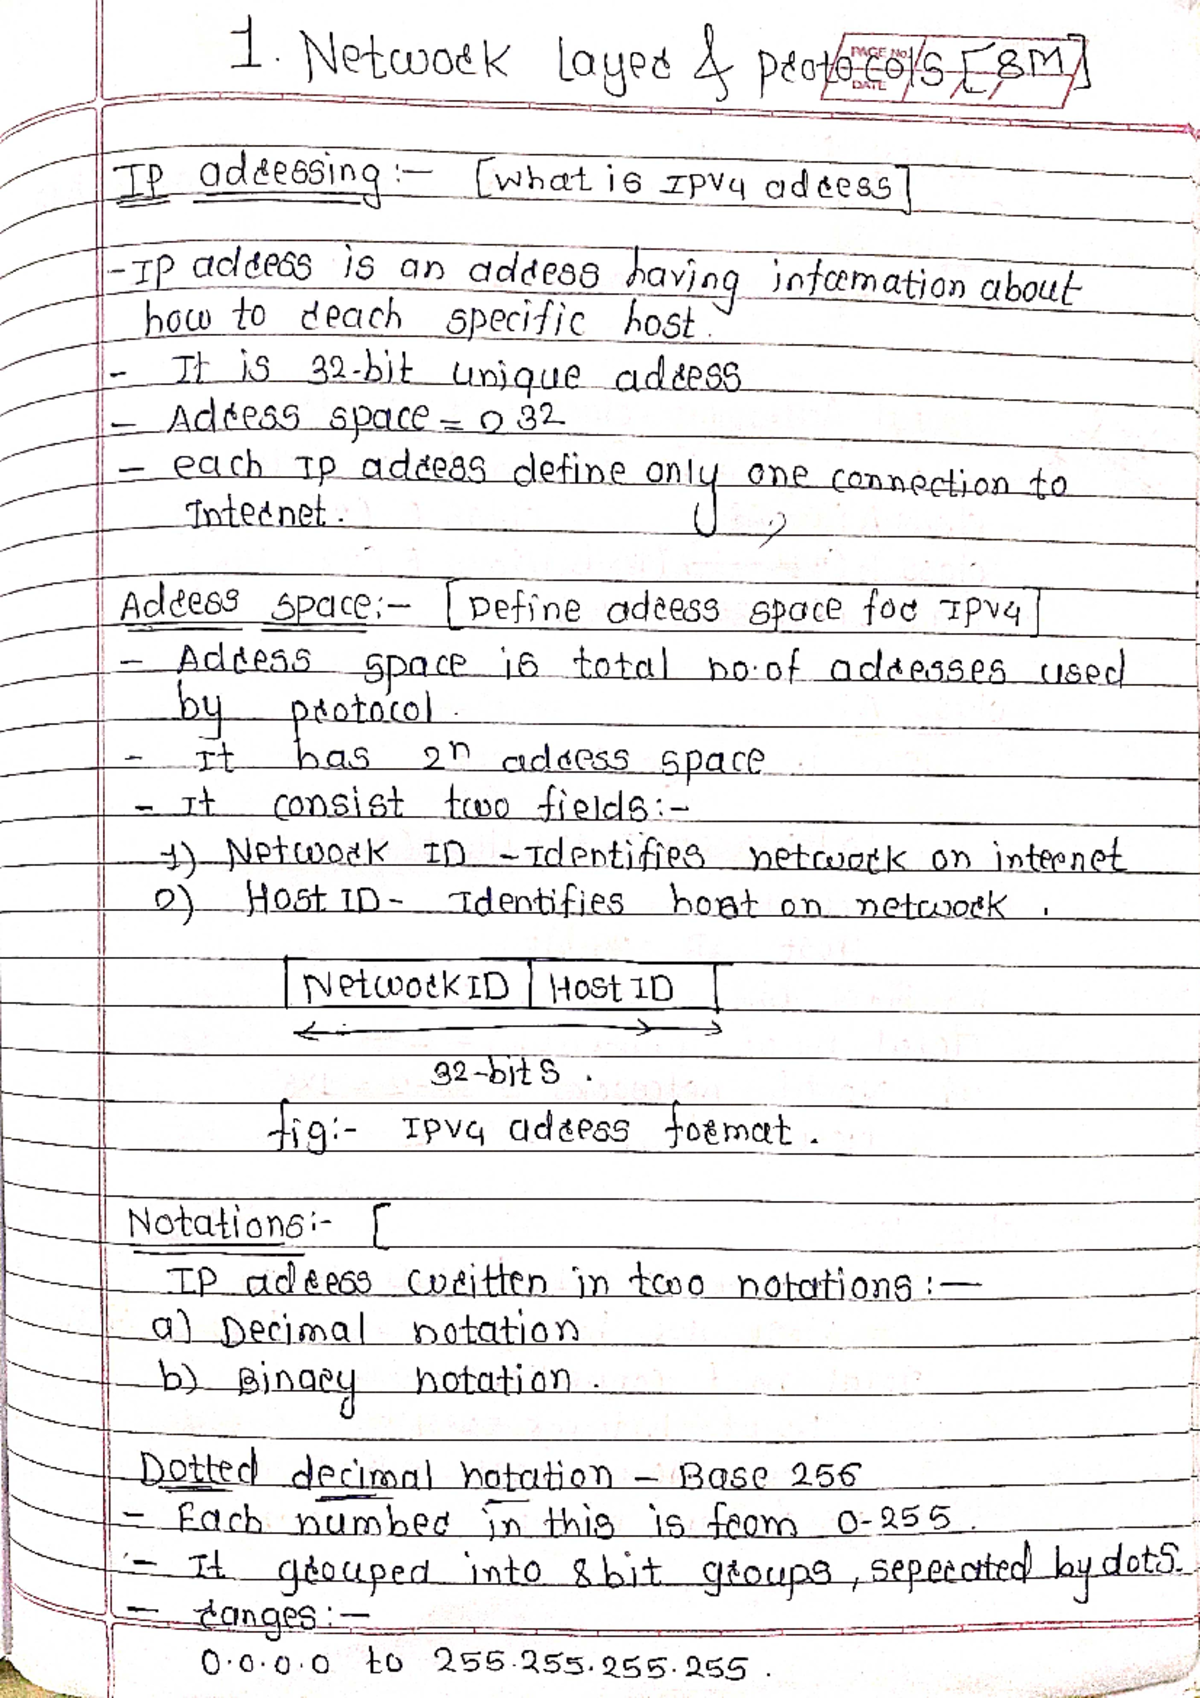 1. Network layer & protocols [8M]
PAGE No.
DATE
IP addressing:- [what is IPV4 address]
-IP address is an address having information about
how to reach specific host.
- It is 32-bit unique address
- Address space = 2 32
- each IP address define only one connection to
Internet.
Address space:- [Define address space for IPV4]
- Address space is total no.of addresses used
by protocol.
- It has 2n address space
- It consist two fields:-
1) Network ID - Identifies network on internet
2) Host ID- Identifies host on network.
Network ID Host ID
32-bits.
fig:- IPV4 address format.
Notations:- [
IP address written in two notations:-
a) Decimal notation
b) Binary notation.
Dotted decimal notation - Base 256
- Each number in this is from 0-255.
- It grouped into 8 bit groups, seperated by dots.
- ranges:-
0.0.0.0 to 255.255.255.255.